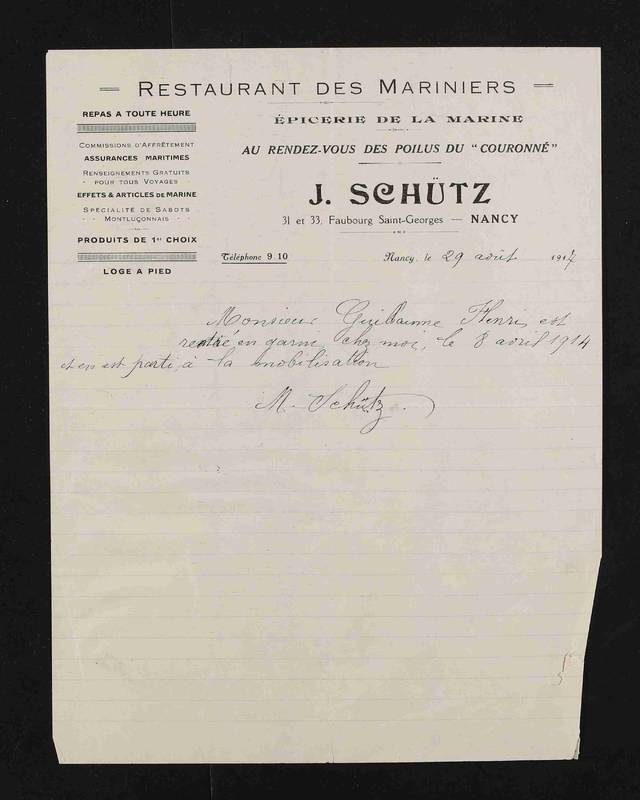 RESTAURANT DES MARINIERS
REPAS A TOUTE HEURE
COMMISSIONS D'AFFRÊTEMENT
ASSURANCES MARITIMES
RENSEIGNEMENTS GRATUITS
- POUR TOUS VOYAGES -
EFFETS & ARTICLES DE MARINE
SPÉCIALITÉ DE SABOTS
- - MONTLUÇONNAIS - -
PRODUITS DE 1er CHOIX
LOGE A PIED
ÉPICERIE DE LA MARINE
AU RENDEZ-VOUS DES POILUS DU "COURONNÉ"
J. SCHÜTZ
31 et 33, Faubourg Saint-Georges — NANCY
Téléphone 9.10
Nancy, le 29 août 1917
Monsieur Guillaume Henri, est
rentré en garni chez moi, le 8 avril 1914
et en est parti à la mobilisation
M. Schütz.